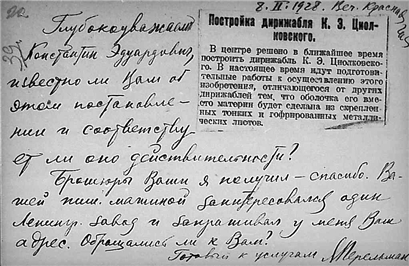 8. II. 1928. Веч. Красная газ.
39.
Глубокоуважаемый
Константин Эдуардович,
известно ли Вам об
этом постановле-
нии и соответству-
ет ли оно действительности?
Постройка дирижабля К. Э. Циол-
ковского.
В центре решено в ближайшее время
построить дирижабль К. Э. Циолковско-
го. В настоящее время идут подготови-
тельные работы к осуществлению этого
изобретения, отличающегося от других
дирижаблей тем, что оболочка его вме-
сто материи будет сделана из скреплен-
ных тонких и гофрированных металли-
ческих листов.
Брошюры Ваши я получил – спасибо. Ва-
шей пиш. машиной заинтересовался один
Ленингр. завод и запрашивал у меня Ваш
адрес. Обращались ли к Вам?
Готовый к услугам Я. Перельман